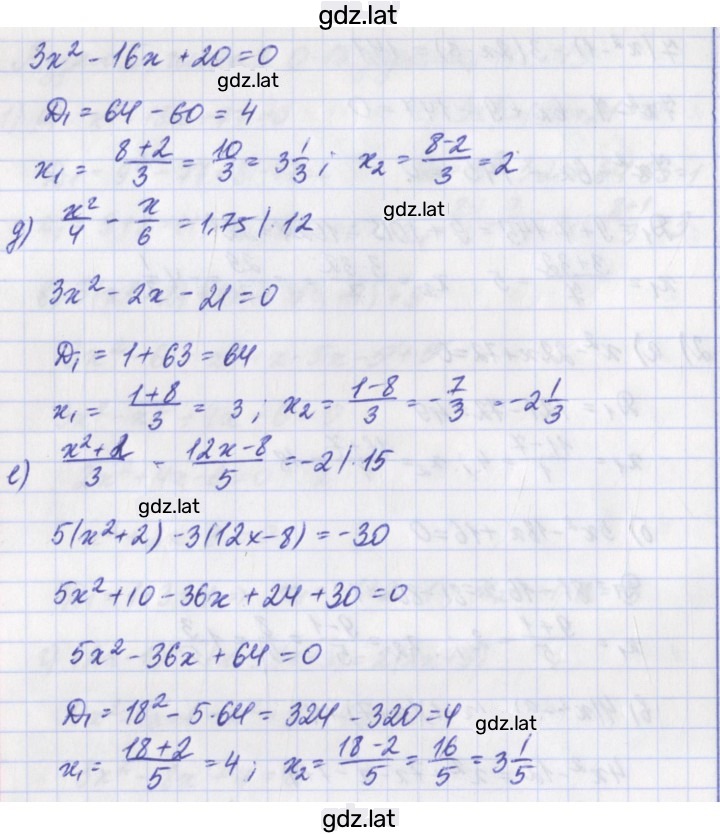 gdz.lat
3x² - 16x + 20 = 0
gdz.lat
D₁ = 64 - 60 = 4
x₁ = (8+2)/3 = 10/3 = 3 1/3; x₂ = (8-2)/3 = 2
gdz.lat
д) x²/4 - x/6 = 1,75 | · 12
3x² - 2x - 21 = 0
D₁ = 1 + 63 = 64
x₁ = (1+8)/3 = 3; x₂ = (1-8)/3 = -7/3 = -2 1/3
е) (x²+2)/3 - (12x-8)/5 = -2 | · 15
gdz.lat
5(x²+2) - 3(12x-8) = -30
5x² + 10 - 36x + 24 + 30 = 0
5x² - 36x + 64 = 0
D₁ = 18² - 5·64 = 324 - 320 = 4
gdz.lat
x₁ = (18+2)/5 = 4; x₂ = (18-2)/5 = 16/5 = 3 1/5
gdz.lat